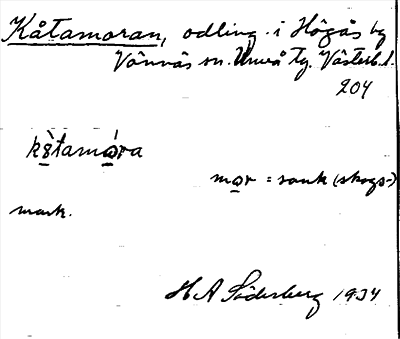 Kåtamoran, odling i Högås by
Vännäs sn. Umeå tg. Västerb. l.
204
kåtamora
mor = sank (skogs-)
mark.
H A Söderberg 1934